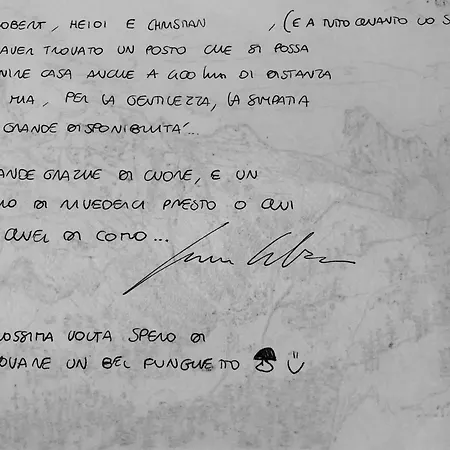 OBERT, HEIDI E CHRISTIAN , (E A TUTTO QUANTO LO S
AVER TROVATO UN POSTO CHE SI POSSA
NIRE CASA ANCHE A 400 km DI DISTANZA
MIA, PER LA GENTILEZZA, LA SIMPATIA
GRANDE DISPONIBILITA'...
ANDE GRAZIE DI CUORE, E UN
DI RIVEDERCI PRESTO O QUI
QUEL DI COMO...
OSSIMA VOLTA SPERO DI
OVARE UN BEL FUNGHETTO